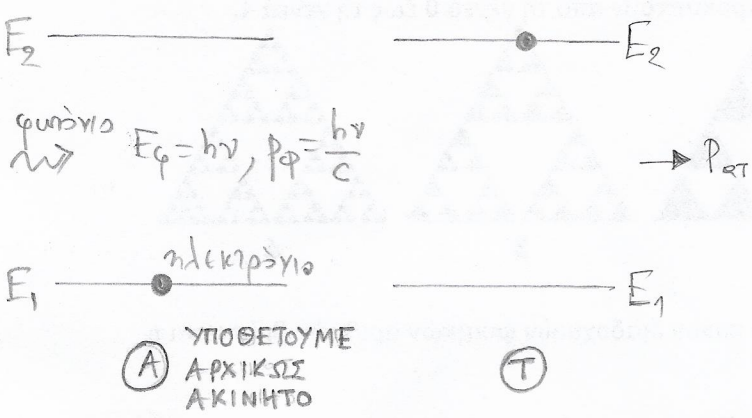 E₂ E₂
φωτόνιο E_φ = hν, p_φ = hν/c
P_ατ
ηλεκτρόνιο
E₁ E₁
Α ΥΠΟΘΕΤΟΥΜΕ
ΑΡΧΙΚΩΣ
ΑΚΙΝΗΤΟ
Τ